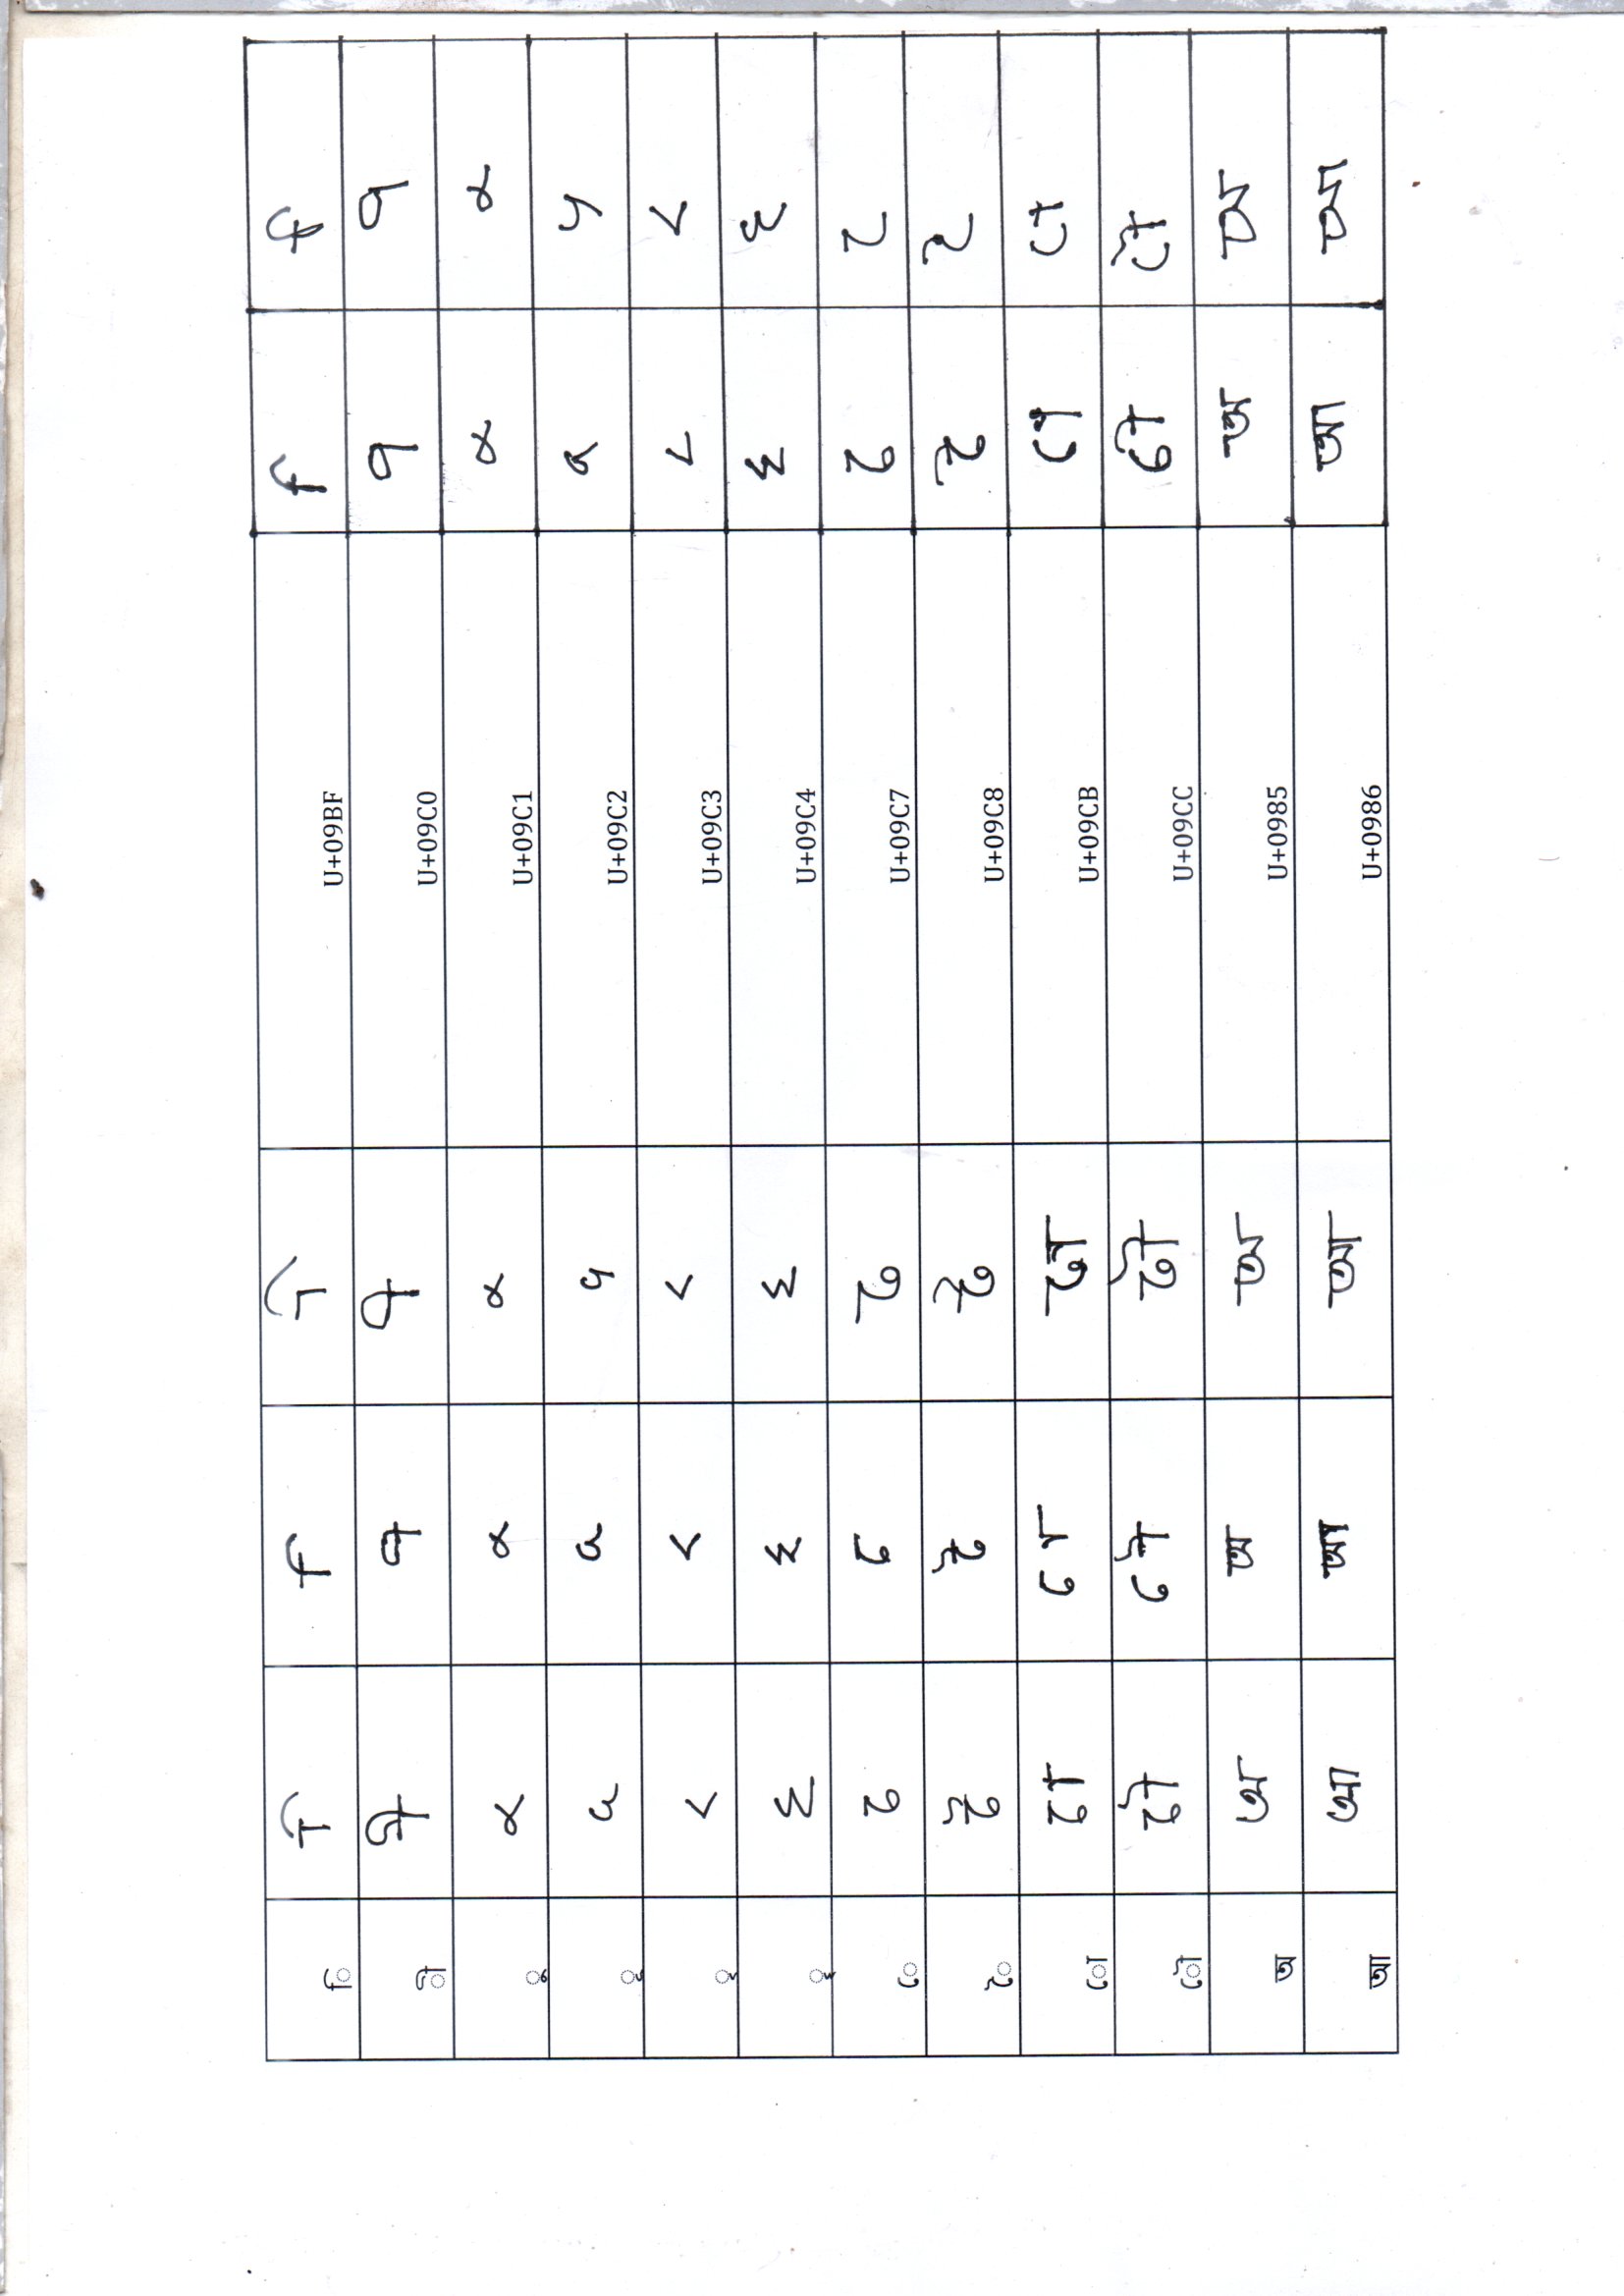 ি ি ি ি U+09BF ি ি
ী ী ী ী U+09C0 ী ী
ু ু ু ু U+09C1 ু ু
ূ ূ ূ ূ U+09C2 ূ ূ
ৃ ৃ ৃ ৃ U+09C3 ৃ ৃ
ৄ ৄ ৄ ৄ U+09C4 ৄ ৄ
ে ে ে ে U+09C7 ে ে
ৈ ৈ ৈ ৈ U+09C8 ৈ ৈ
ো ো ো ো U+09CB ো ো
ৌ ৌ ৌ ৌ U+09CC ৌ ৌ
অ অ অ অ U+0985 অ অ
আ আ আ আ U+0986 আ আ